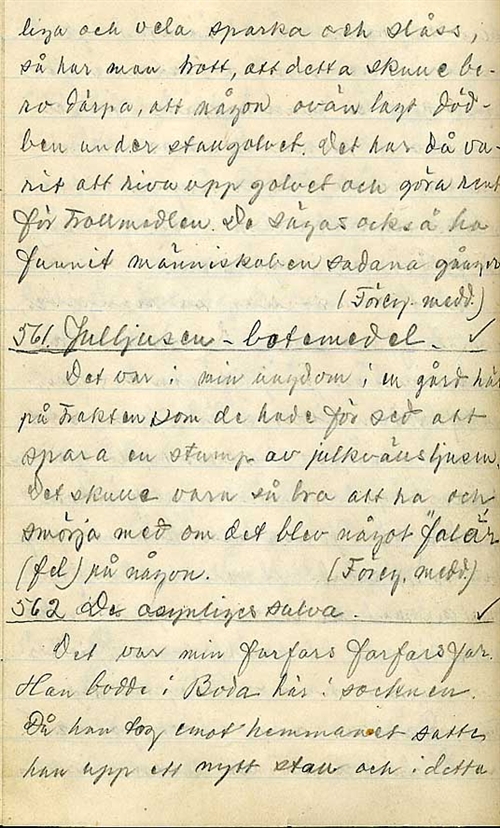 liga och vela sparka och slåss,
så har man trott, att detta skulle be-
ro därpå, att någon ovän lagt död-
ben under stallgolvet. Det har då va-
rit att riva upp golvet och göra rent
för trollmedlen. De sägas också ha
funnit människoben sådana gånger
(Föreg. medd.)
561 Julljusen - botemedel. ✓
Det var i min ungdom i en gård här
på trakten som de hade för sed att
spara en stump av julkvällsljusen.
Det skulle vara så bra att ha och
smörja med om det blev något "falär"
(fel) på någon. (Föreg. medd.)
562 De osynligas salva. ✓
Det var min farfars farfars far.
Han bodde i Boda här i socknen.
Då han tog emot hemmanet satte
han upp ett nytt stall och i detta